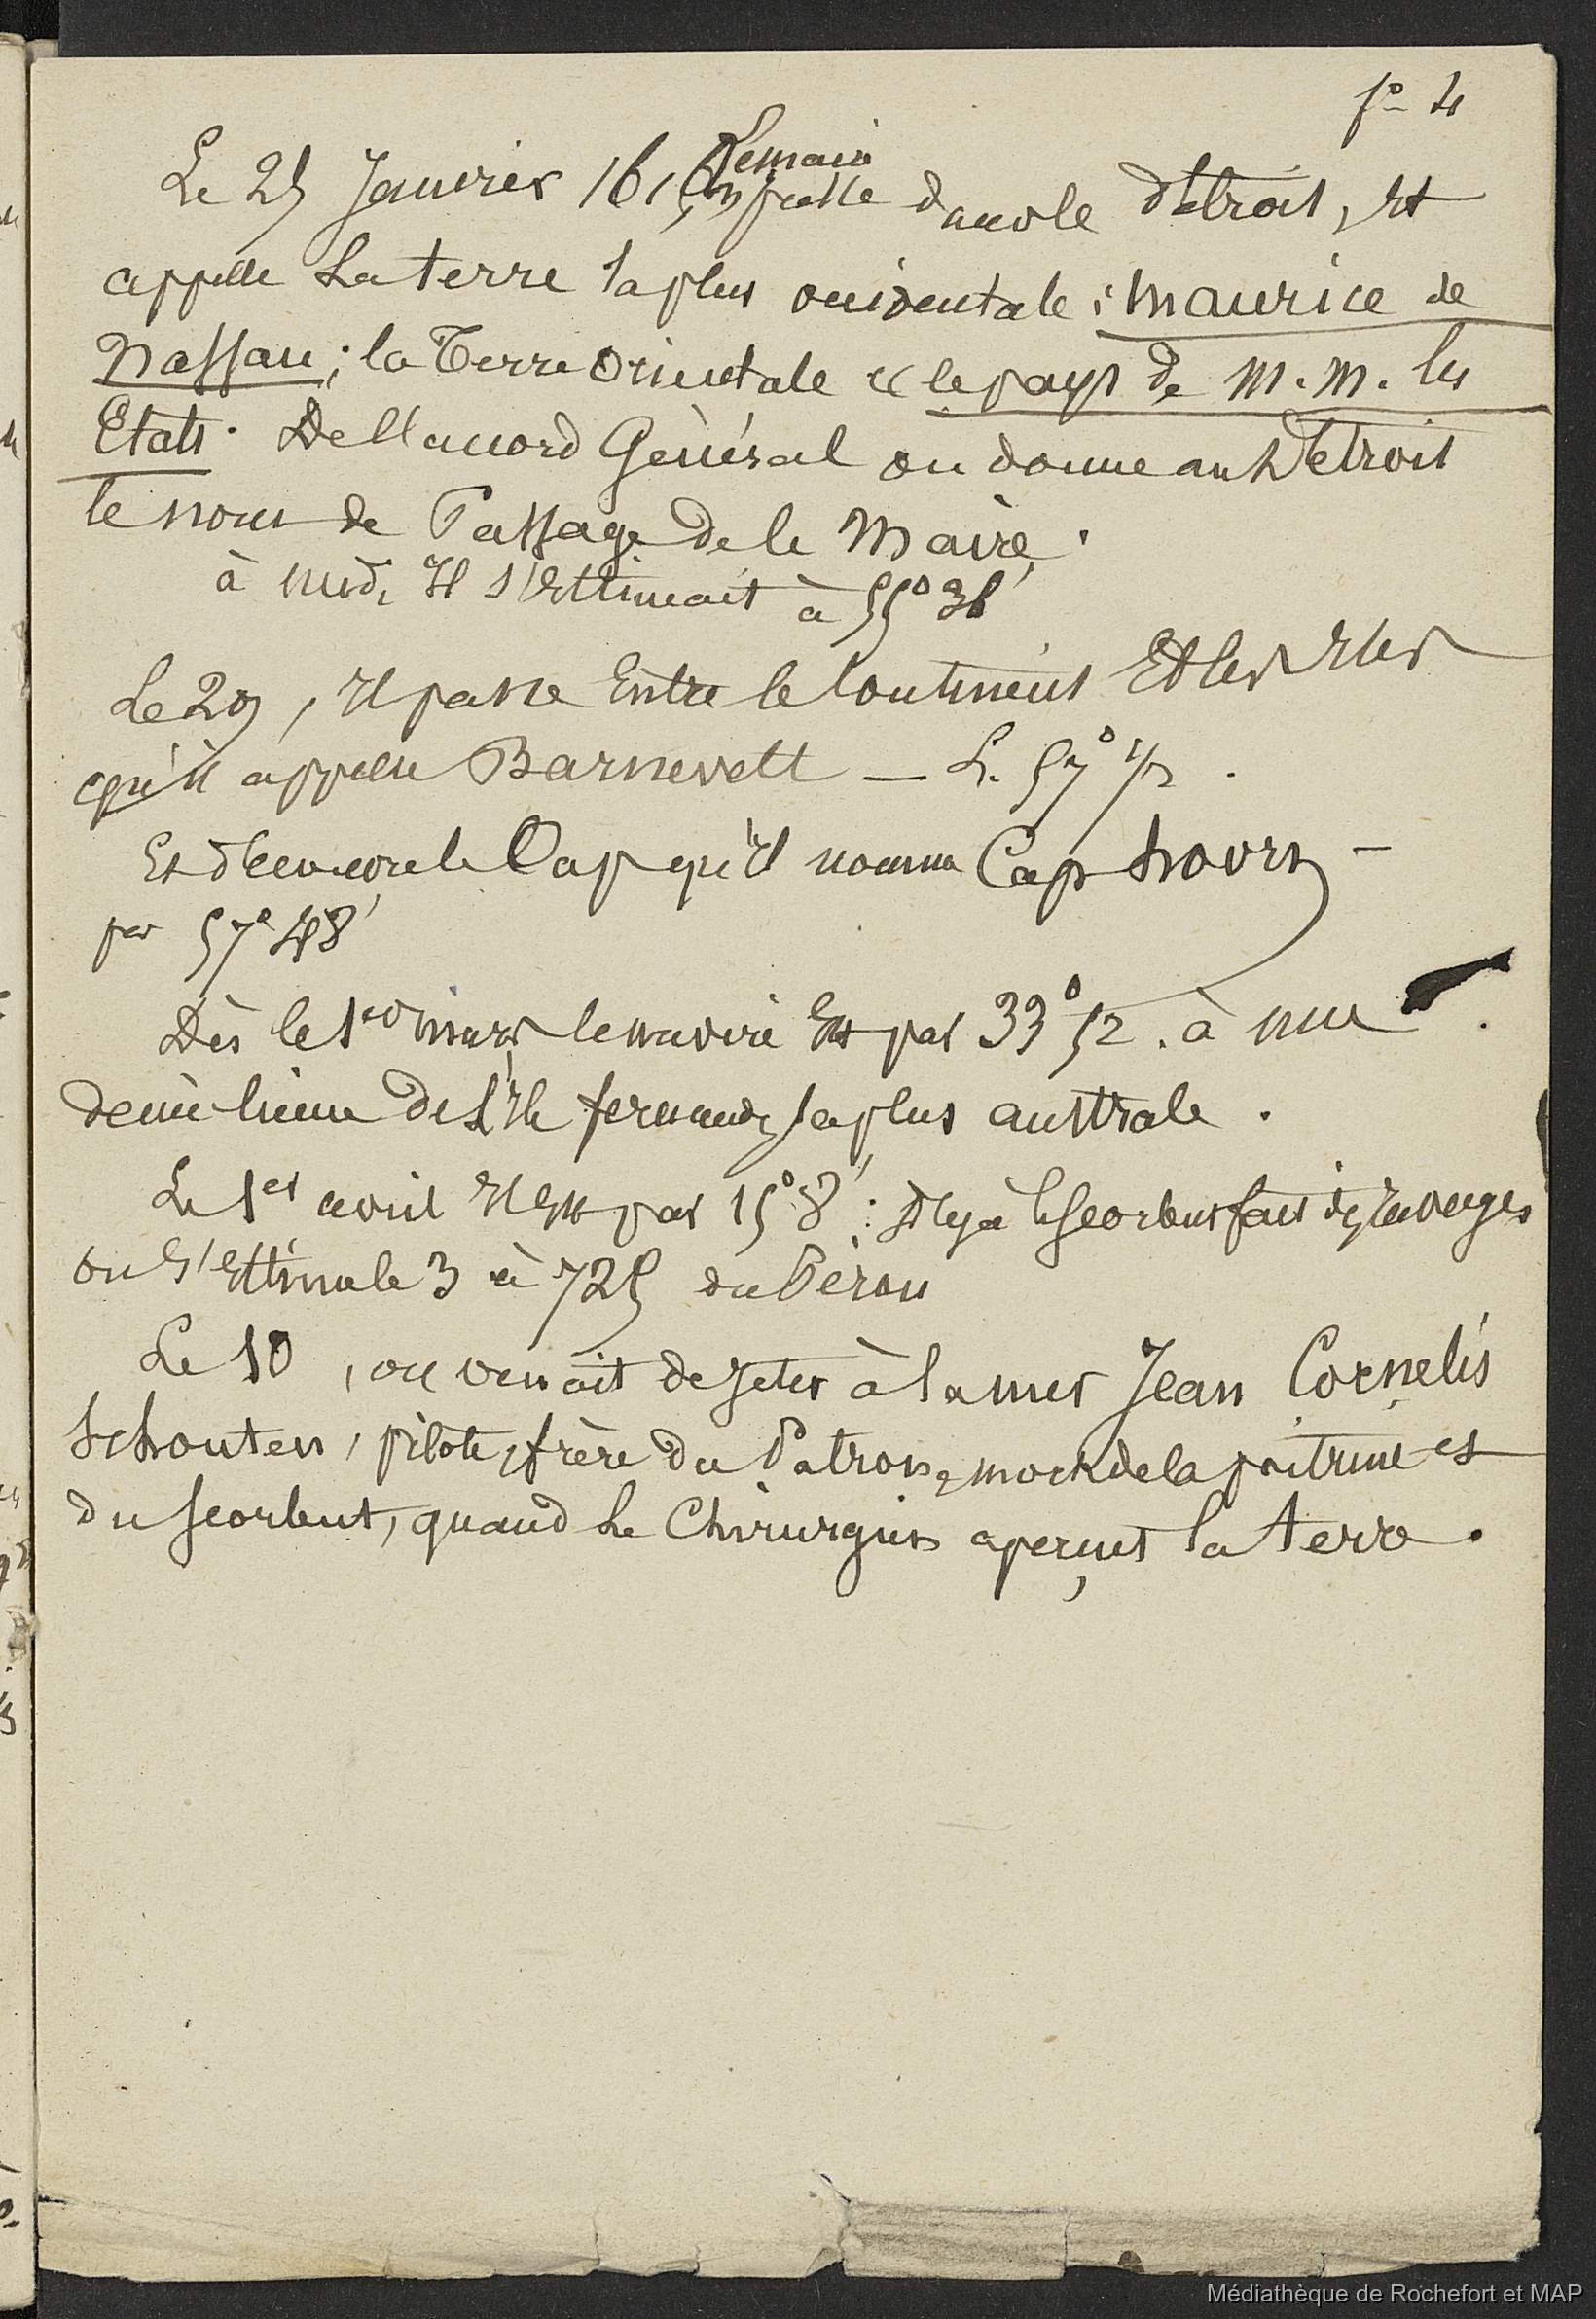 fo 4
Le 25 Janvier 1616, Lemaire
passe dans le détroit, et
appelle la terre la plus occidentale : Maurice de
Nassau ; la Terre Orientale le pays de M. M. les
Etats. De l'accord Général on donne au Détroit
le nom de Passage de le Maire.
à midi Il s'estimait à 55° 36'
Le 29, Il passe Entre le Continent Et les Iles
qu'il appelle Barnevelt — L. 57° 1/2.
Et découvre le Cap qu'il nomma Cap hoorn —
par 57° 48'
Dès le 1er mars le navire Est par 33° 52. à une
demie lieue de l'Ile fernandez la plus australe.
Le 1er avril Il Est par 15° 8' : Déjà le Scorbut fait des ravages
On s'Estima le 3 à 725 du Pérou
Le 10, on venait de jeter à la mer Jean Cornelis
Schouten, pilote, frère du Patron, mort de la poitrine et
du scorbut, quand Le Chirurgien aperçut la terre.
Médiathèque de Rochefort et MAP